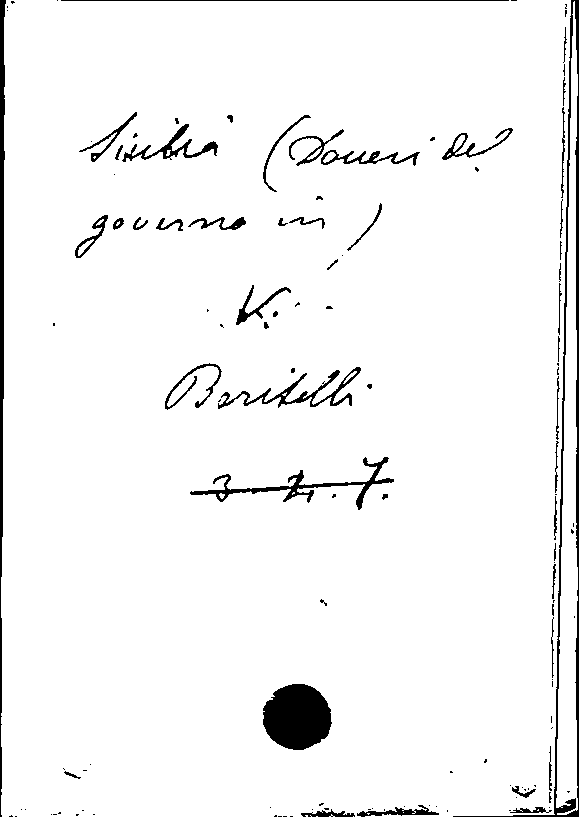 Sicilia (Doveri del
governo in)
V.
Beritelli
3 2. 7.